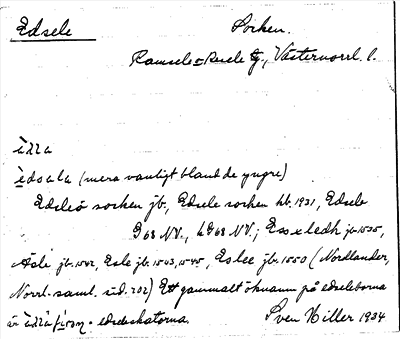 Edsele Socken.
Ramsele o Resele tg., Västernorrl. l.
èdsala (mera vanligt bland de yngre)
Edsele socken jb., Edsele socken kb. 1931, Edsele
G 68 NV., kG 68 NV; Essxledh jb. 1535,
Åsle jb. 1542, Esle jb. 1543, 1545, Eslee jb. 1550 (Nordlander,
Norrl. saml. sid. 202) Ett gammalt öknamn på edseleborna
är edseleskatorna. Sven Hiller 1934